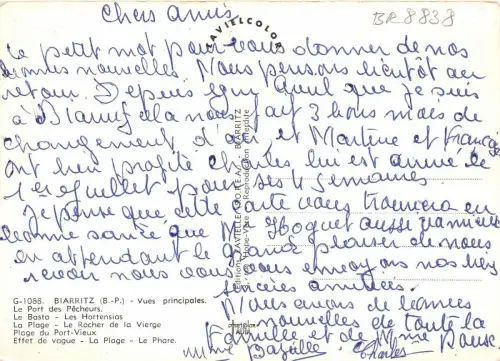 Chers amis
BR8838
LAVIELLECOLOR
ce petit mot pour vous donner de nos
bonnes nouvelles Nous pensons bientôt au
retour. Depuis que je suis
à cela nous fait 3 bons mois de
changement d'air et Martine et
ont bien profité Charles lui est arrivé le
1er juillet pour ses 4 semaines.
Je pense que cette carte vous trouvera en
bonne santé que Mr Hoguet aussi
en attendant le grand plaisir de vous
revoir nous vous envoyons nos
amitiés.
Nous avons de bonnes
nouvelles de toute la
famille et de Mme
Charles
BIARRITZ
Reproduction Interdite
G-1088. BIARRITZ (B.-P.) - Vues principales.
Le Port des Pêcheurs.
Le Basta - Les Hortensias
La Plage - Le Rocher de la Vierge
Plage du Port-Vieux
Effet de vague - La Plage - Le Phare.